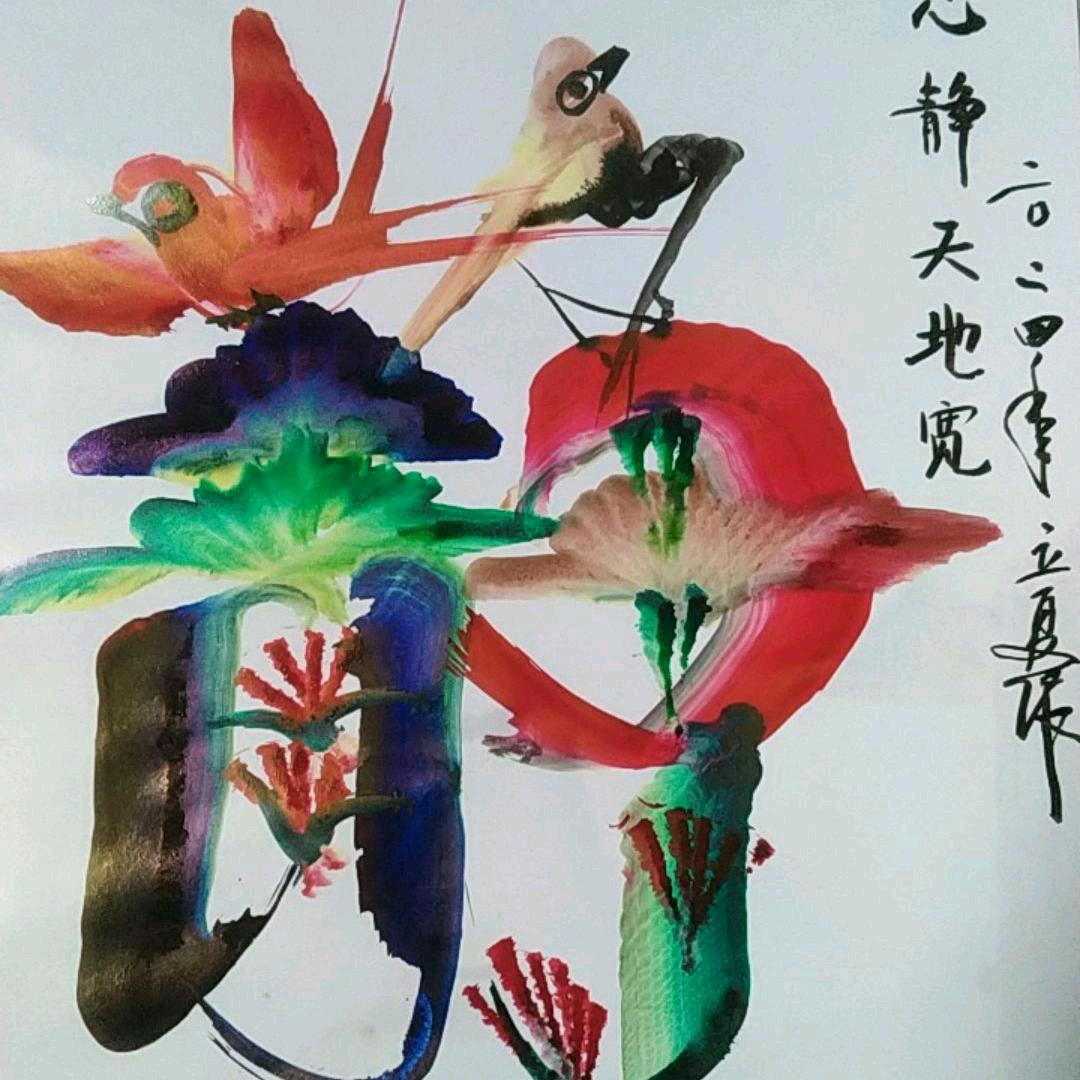 静
心静天地宽
二〇二四年立夏